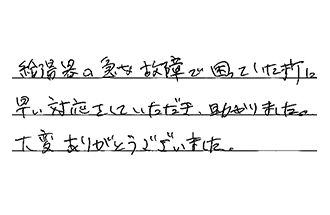 給湯器の急な故障で困っていた折に
早い対応をしていただき、助かりました。
大変ありがとうございました。